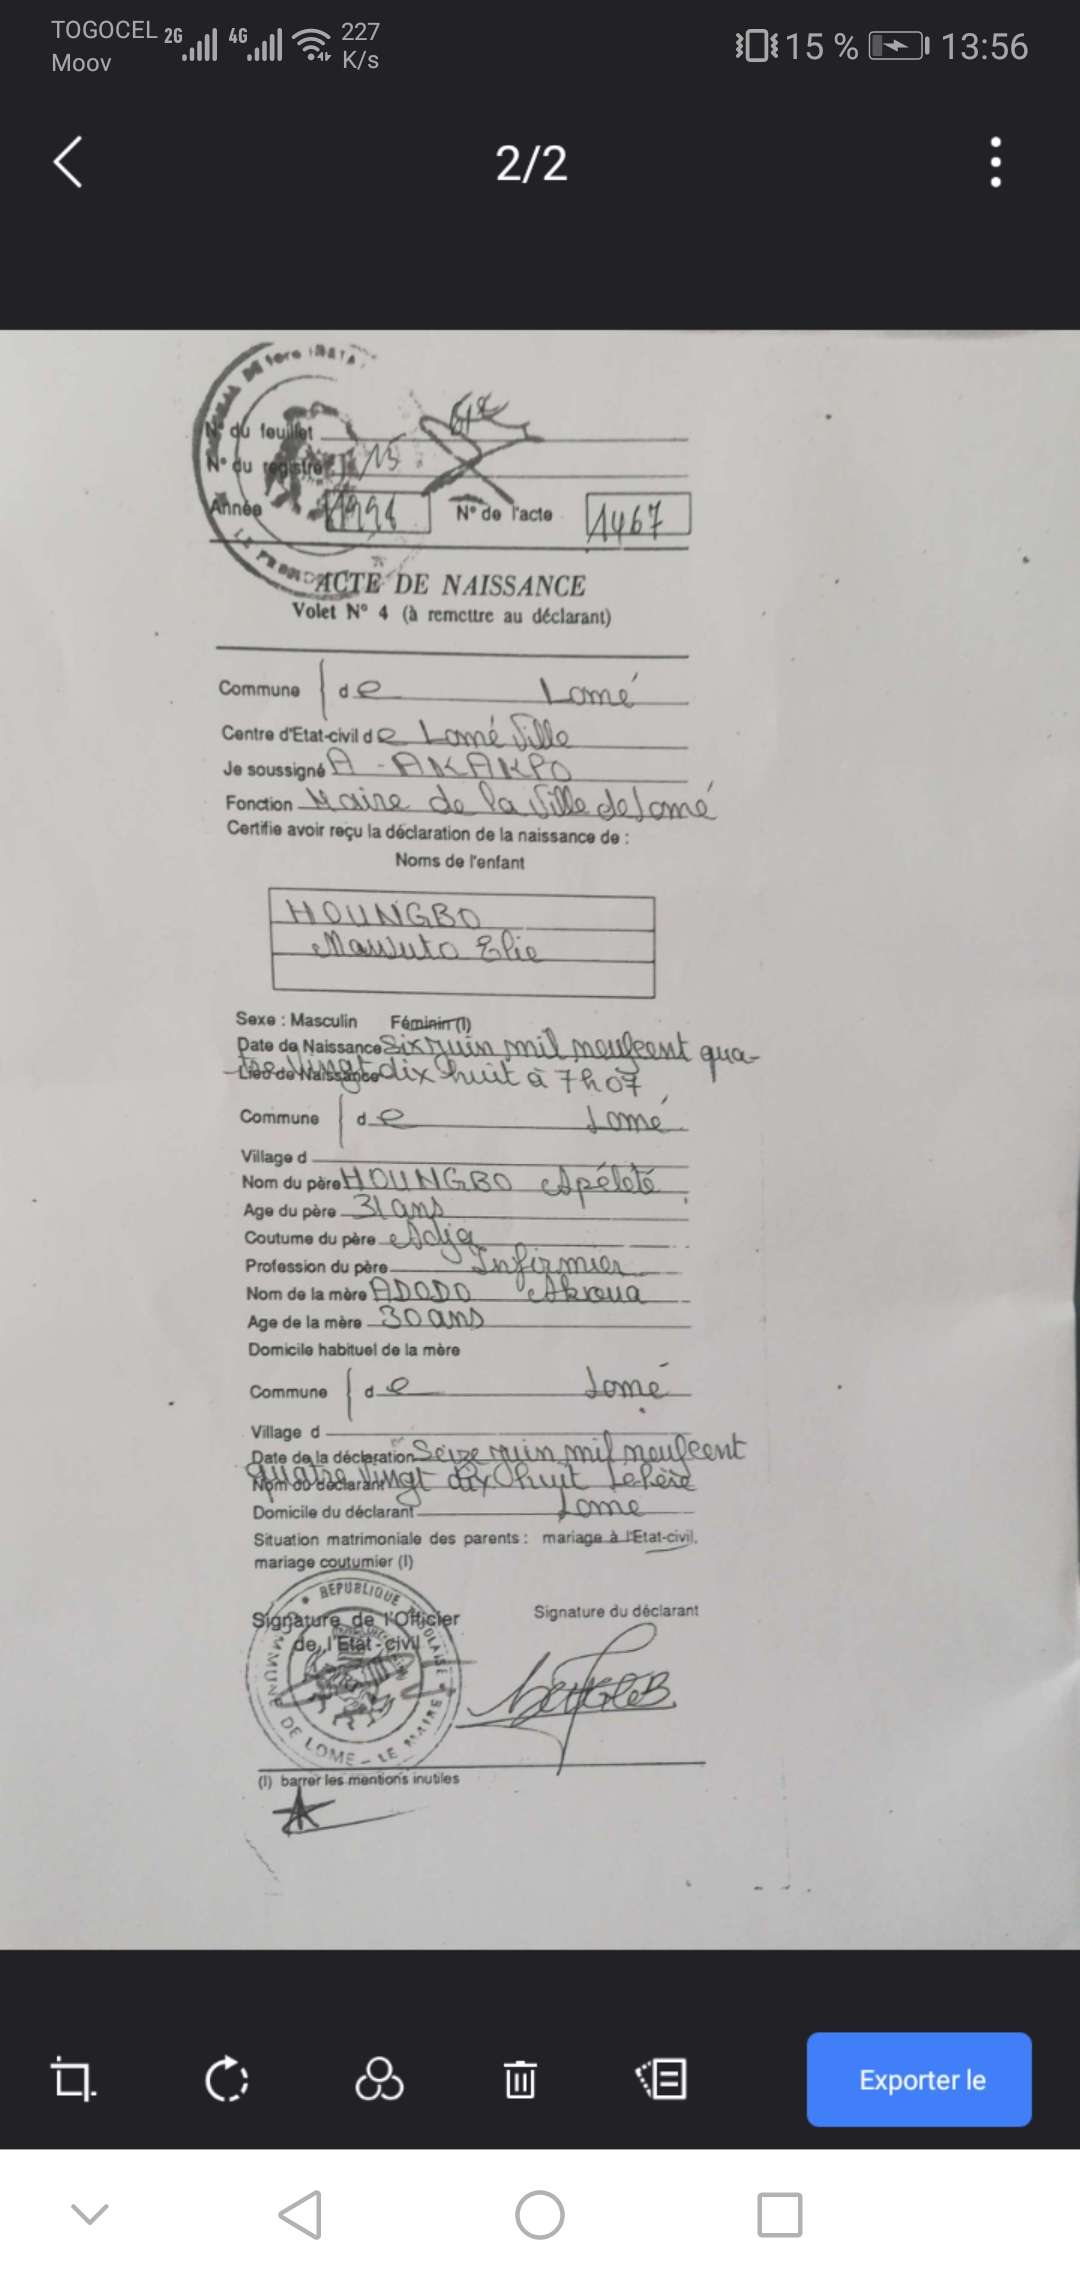 TOGOCEL 2G 4G 227 K/s 15 % 13:56
Moov
2/2
N° du feuillet
N° du registre 15
Année 1998 N° de l'acte 1467
ACTE DE NAISSANCE
Volet N° 4 (à remettre au déclarant)
Commune de Lomé
Centre d'Etat-civil de Lomé Ville
Je soussigné A - AKAKPO
Fonction Maire de la Ville de Lomé
Certifie avoir reçu la déclaration de la naissance de :
Noms de l'enfant
HOUNGBO
Mawuto Elie
Sexe : Masculin Féminin (I)
Date de Naissance Six juin mil neuf cent qua-
Lieu de Naissance tre vingt dix huit à 7h07
Commune de Lomé
Village d
Nom du père HOUNGBO Apélété
Age du père 31 ans
Coutume du père Adja
Profession du père Infirmier
Nom de la mère ADODO Akoua
Age de la mère 30 ans
Domicile habituel de la mère
Commune de Lomé
Village d
Date de la déclaration Seize juin mil neuf cent
Nom du déclarant quatre vingt dix huit Le Père
Domicile du déclarant Lome
Situation matrimoniale des parents : mariage à l'Etat-civil,
mariage coutumier (I)
REPUBLIQUE TOGOLAISE
COMMUNE DE LOME - LE MAIRE
Signature de l'Officier Signature du déclarant
de l'Etat-civil
(I) barrer les mentions inutiles
Exporter le